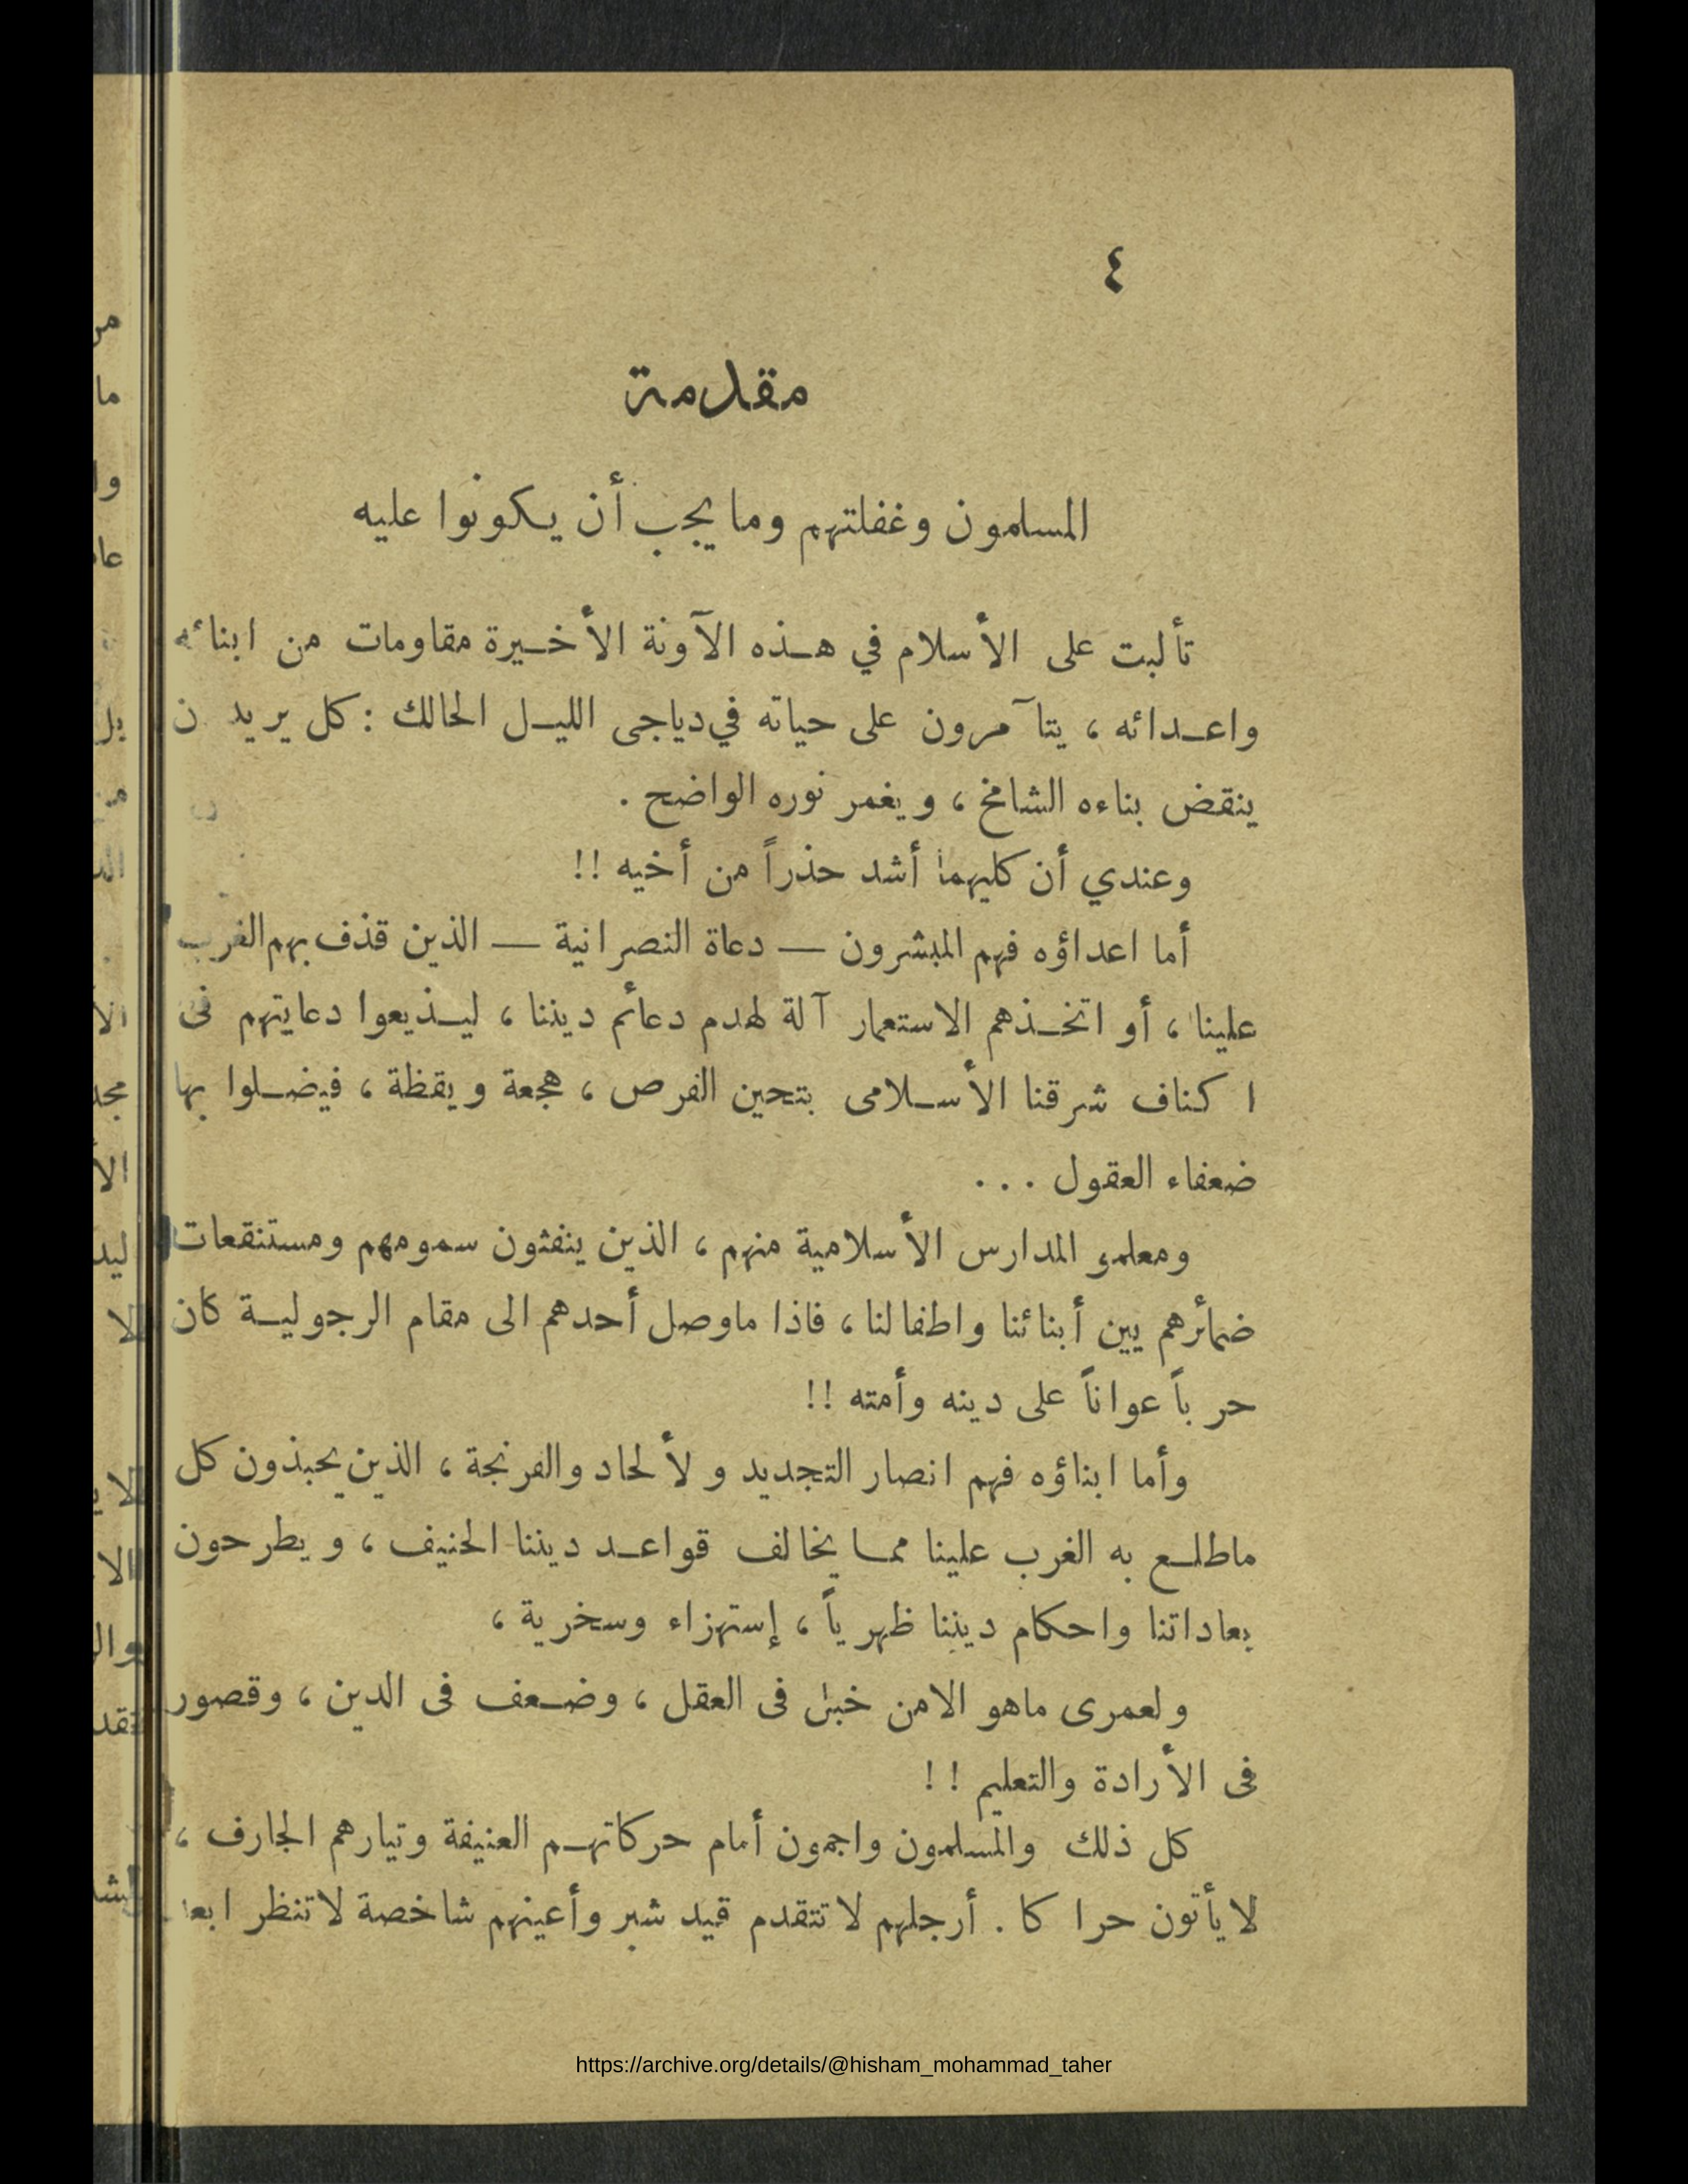 ٤
مقدمة
المسلمون وغفلتهم وما يجب أن يكونوا عليه
تألبت على الأسلام في هذه الآونة الأخيرة مقاومات من ابنائه
واعدائه ، يتآمرون على حياته في دياجى الليل الحالك : كل يريد ن
ينقض بناءه الشامخ ، ويغمر نوره الواضح .
وعندي أن كليهما أشد حذراً من أخيه !!
أما اعداؤه فهم المبشرون — دعاة النصرانية — الذين قذف بهم الغرب
علينا ، أو اتخذهم الاستعمار آلة لهدم دعائم ديننا ، ليذيعوا دعايتهم فى
اكناف شرقنا الأسلامى بتحين الفرص ، هجعة ويقظة ، فيضلوا بها
ضعفاء العقول ...
ومعلمو المدارس الأسلامية منهم ، الذين ينفثون سمومهم ومستنقعات
ضمائرهم بين أبنائنا واطفالنا ، فاذا ماوصل أحدهم الى مقام الرجولية كان
حرباً عواناً على دينه وأمته !!
وأما ابناؤه فهم انصار التجديد و لألحاد والفرنجة ، الذين يحبذون كل
ماطلع به الغرب علينا مما يخالف قواعد ديننا الحنيف ، ويطرحون
بعاداتنا واحكام ديننا ظهرياً ، إستهزاء وسخرية ،
ولعمرى ماهو الامن خبل فى العقل ، وضعف فى الدين ، وقصور
فى الأرادة والتعليم !!
كل ذلك والمسلمون واجمون أمام حركاتهم العنيفة وتيارهم الجارف ،
لايأتون حراكا . أرجلهم لاتتقدم قيد شبر وأعينهم شاخصة لاتنظر
https://archive.org/details/@hisham_mohammad_taher